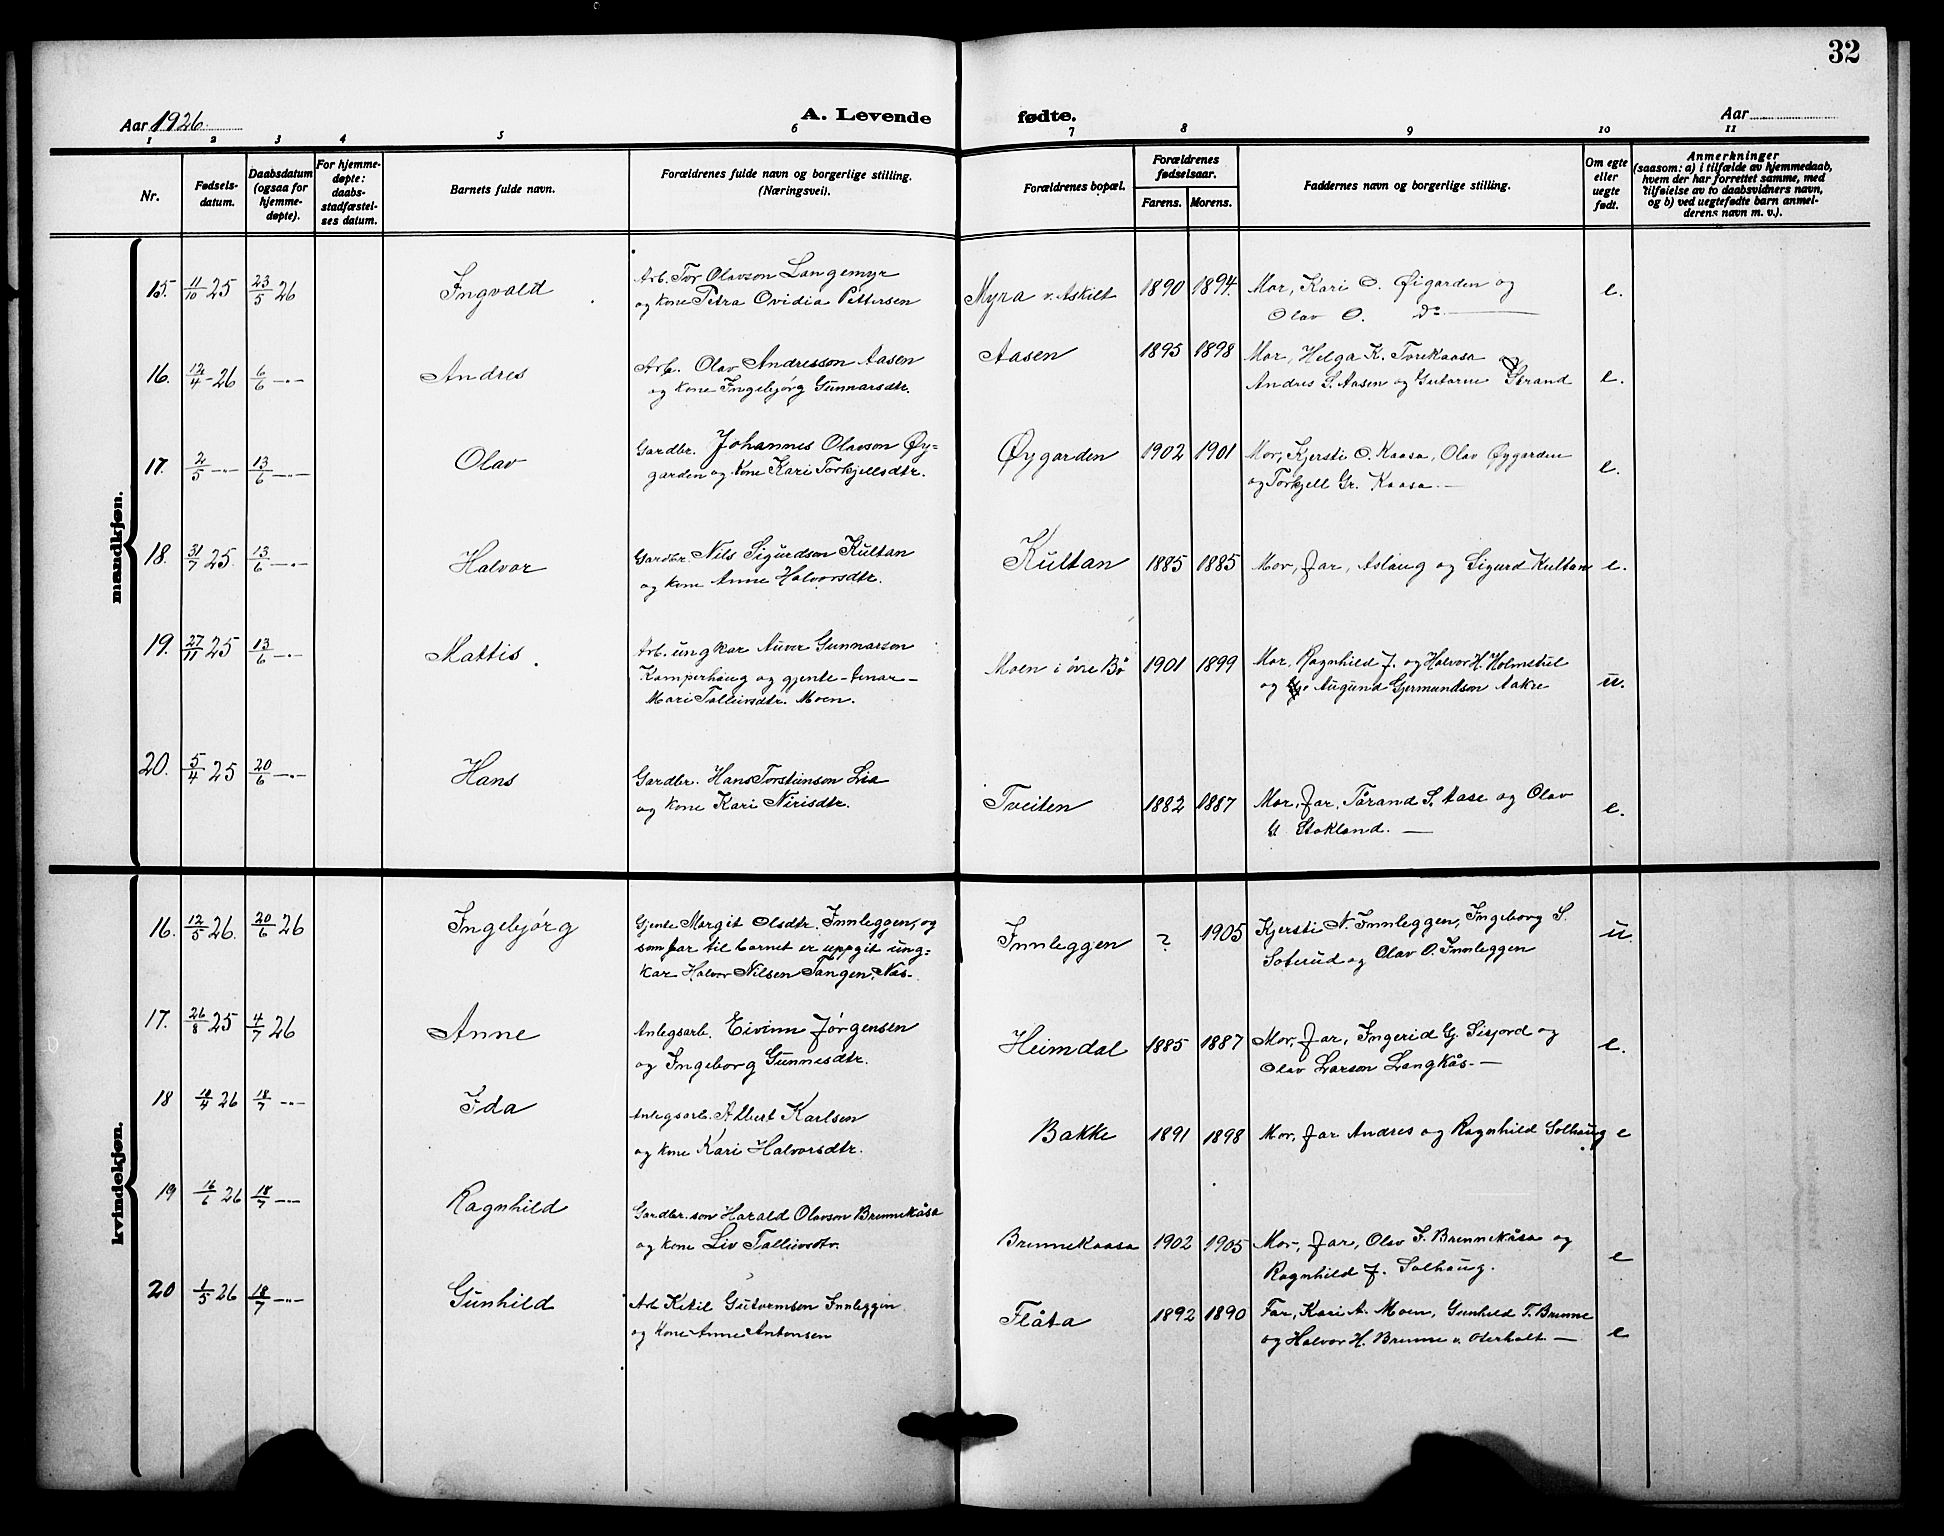 32
Aar 1926.
A. Levende fødte.
Aar
1 2 3 4 5 6 7 8 9 10 11
Nr.
Fødsels-
datum.
Daabsdatum
(ogsaa for
hjemme-
døpte).
For hjemme-
døpte:
daabs-
stadfæstel-
ses datum.
Barnets fulde navn.
Forældrenes fulde navn og borgerlige stilling.
(Næringsvei).
Forældrenes bopæl.
Forældrenes
fødselsaar.
Farens. Morens.
Faddernes navn og borgerlige stilling.
Om egte
eller
uegte
født.
Anmerkninger
(saasom: a) i tilfælde av hjemmedaab,
hvem der har forrettet samme, med
tilføielse av to daabsvidners navn,
og b) ved uegtefødte barn anmel-
derens navn m. v.).
mandkjøn.
15. 11/10 25 23/5 26 Ingvald Arb. Tor Olavson Langemyr Myra v. Askilt 1890 1894. Mor, Kari O. Øigarden og e.
og kone Petra Ovidia Pettersen Olav O. Do
16. 12/4 - 26 6/6 -"- Andres Arb. Olav Andresson Aasen Aasen 1895 1898 Mor, Helga K. Torekaasa
og kone Ingebjörg Gunnarsdtr. Andres S. Aasen og Gutorm Strand e.
17. 2/5 -"- 13/6 -"- Olav Gardbr. Johannes Olavson Øy- Øygarden 1902 1901 Mor, Kjersti O. Kaasa, Olav Øygarden e.
garden og kone Kari Torkjellsdtr. og Torkjell Gr. Kaasa. —
18. 31/7 25. 13/6 -"- Halvor Gardbr. Nils Sigurdson Kultan Kultan 1885 1885 Mor, far, Aslaug og Sigurd Kultan e.
og kone Anne Halvorsdtr.
19. 27/11 25 13/6 -"- Mattis. Arb. ungkar Auver Gunnarson Moen i övre Bö 1901 1899 Mor, Ragnhild J. og Halvor H. Holmstul
Kamperhaug og gjente - tenar - og Augund Gjermundson Aakre u.
Mari Talleivsdtr. Moen.
20. 5/4 25 20/6 -"- Hans Gardbr. Hans Torsteinson Lia Tveiten 1882 1887 Mor, far, Tårand S. Aase og Olav e.
og kone Kari Nirisdtr. Stokland. —
kvindekjøn.
16. 12/5 26. 20/6 26 Ingebjörg Gjente Margit Olsdtr. Innleggen, og Innleggen ? 1905 Kjersti N. Innleggen, Ingeborg S. u.
som far til barnet er uppgit ung- Soterud og Olav O. Innleggen
kar Halvor Nilsen Tangen, Nas.
17. 26/8 25 4/7 26 Anne Anlegsarb. Eivinn Jörgensen Heimdal 1885 1887 Mor, far, Ingerid G. Sisjord og e.
og Ingeborg Gunnesdtr. Olav Larson Langkås. —
18 18/4 26 18/7 -"- Ida Anlegsarb. Albert Karlsen Bakke 1891 1898 Mor, far Andres og Ragnhild Solhaug e
og kone Kari Halvorsdtr.
19 16/6 26 18/7 -"- Ragnhild Gardbr. son Harald Olavson Brennekåsa Brennekaasa 1902 1905 Mor, far, Olav I. Brennekåsa og e
og kone Liv Talleivsdtr. Ragnhild J. Solhaug.
20 1/5 26 18/7 -"- Gunhild Arb Ketil Gutormson Innleggin Flåta 1892 1890 Far, Kari A. Moen, Gunhild T. Brenne
og kone Anne Antonsen og Halvor H. Brenne v. Oterholt. — e